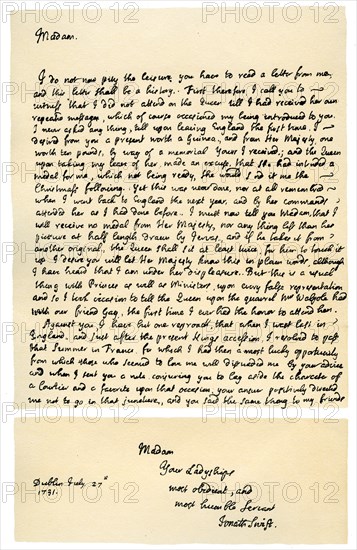 Madam.
I do not now pity the leisure you have to read a letter from me,
and this letter shall be a history. First therefore, I call you to
witness that I did not attend on the Queen till I had received her own
repeated messages, which of course occasioned my being introduced to you.
I never asked any thing, till upon leaving England the first time, I
desired from you a present worth a Guinea, and from Her Majesty one
worth ten pounds, by way of a memorial. Yours I received; and the Queen
upon taking my leave of her, made an excuse, that she had intended a
medal for me, which not being ready, she would send it me the
Christmass following. Yet this was never done, nor at all remembred
when I went back to England the next year, and by her commands
attended her as I had done before. I must now tell you Madam, that I
will receive no medal from Her Majesty, nor any thing less than her
picture at half length, drawn by Jervas; and if he takes it from
another original, the Queen shall sit at least twice, for him to touch it
up. I desire you will let Her Majesty know this in plain words, although
I have heard that I am under her displeasure. But this is a usual
thing with Princes as well as Ministers, upon every false representation
and so I took occasion to tell the Queen upon the quarrel Mr Walpole had
with our friend Gay, the first time I ever had the honor to attend her.
Against you I have but one reproach, that when I was last in
England, and just after the present Kings accession, I resolved to pass
that Summer in France, for which I had then a most lucky opportunity
from which those who seemed to love me well dissuaded me by your advice
and when I sent you a note conjuring you to lay aside the character of
a Courtier and a favorite upon that occasion, your answer positively directed
me not to go in that juncture, and you said the same thing to my friends
Madam
Your Ladyships
most obedient, and
most humble Servant
Jonath: Swift.
Dublin July 27th
1731.
PHOTO12